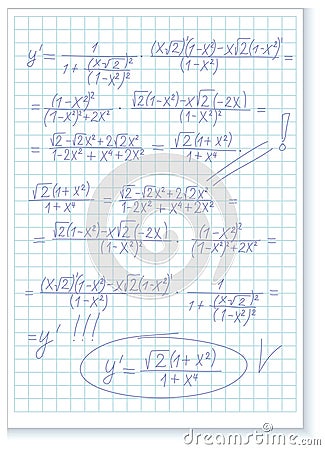 y' = 1/(1 + (x√2)²/(1-x²)²) · ((x√2)'(1-x²)-x√2(1-x²)')/(1-x²) =
= (1-x²)²/((1-x²)²+2x²) · (√2(1-x²)-x√2(-2x))/(1-x²)² =
= (√2-√2x²+2√2x²)/(1-2x²+x⁴+2x²) = √2(1+x²)/(1+x⁴). !
√2(1+x²)/(1+x⁴) = (√2-√2x²+2√2x²)/(1-2x²+x⁴+2x²) =
= (√2(1-x²)-x√2(-2x))/(1-x²)² · (1-x²)²/((1-x²)²+2x²) =
= ((x√2)'(1-x²)-x√2(1-x²)')/(1-x²) · 1/(1+(x√2)²/(1-x²)²) =
= y' !!!!
y' = √2(1+x²)/(1+x⁴)
dreamstime.com